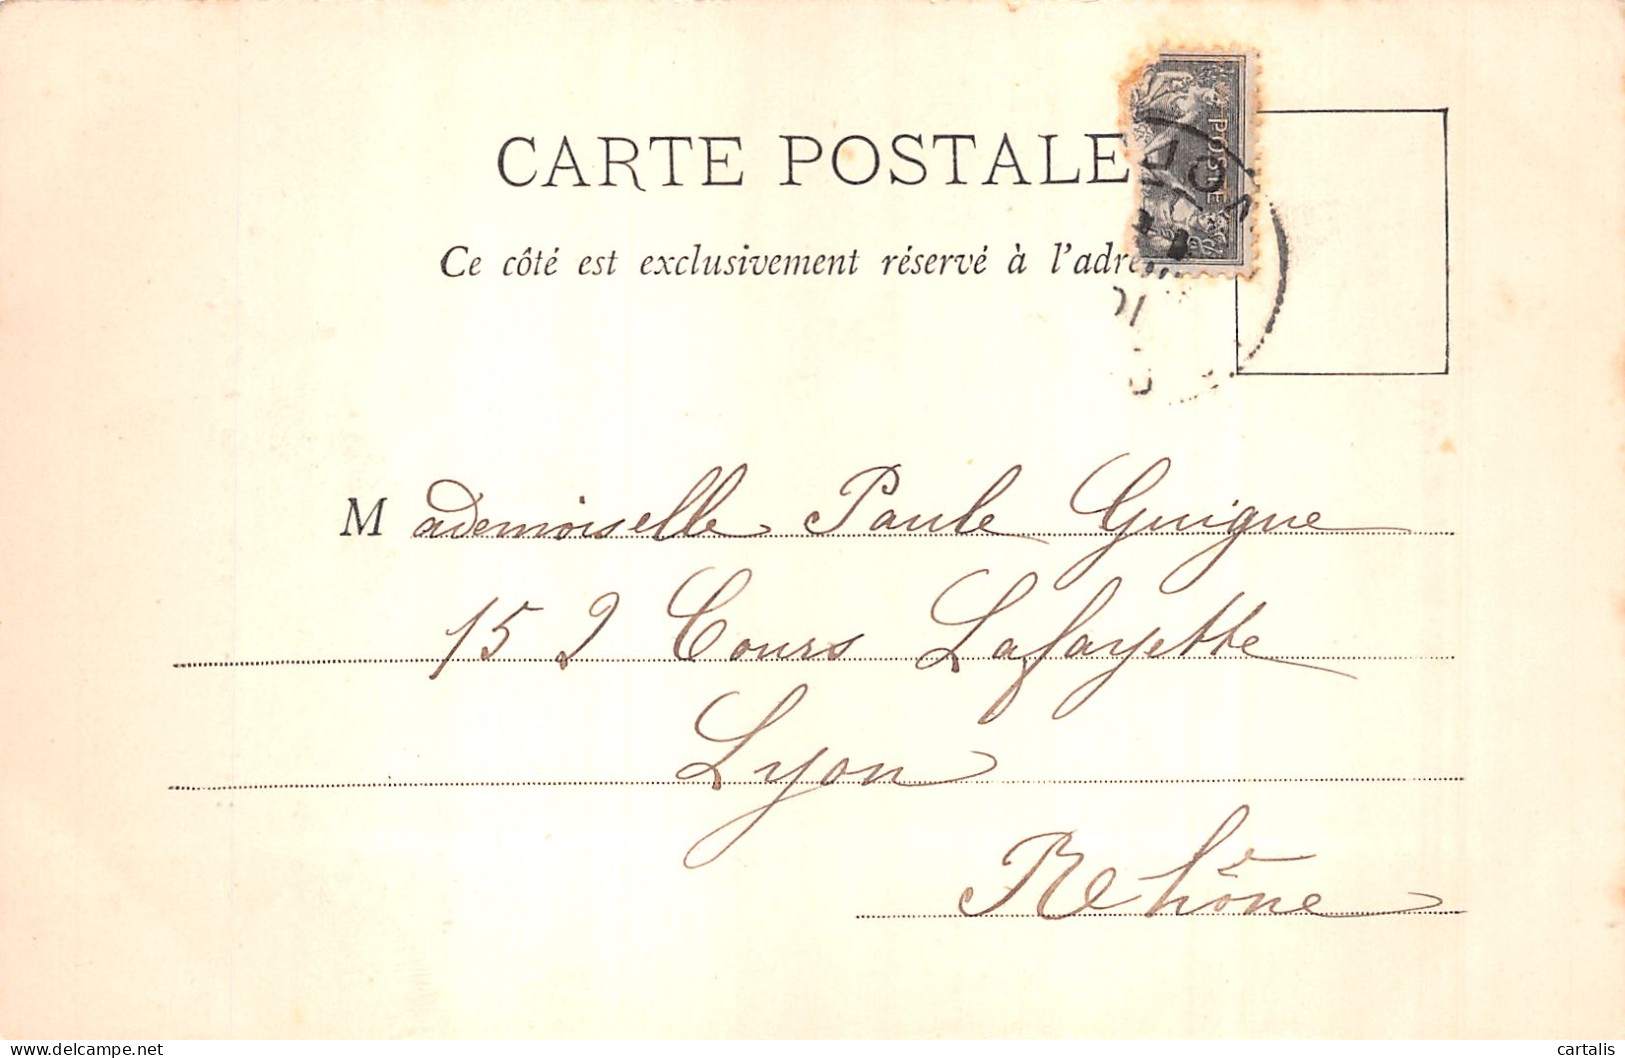 CARTE POSTALE
POSTE
Ce côté est exclusivement réservé à l'adre
Mademoiselle Paule Guigue
152 Cours Lafayette
Lyon
Rhône
www.delcampe.net
cartalis